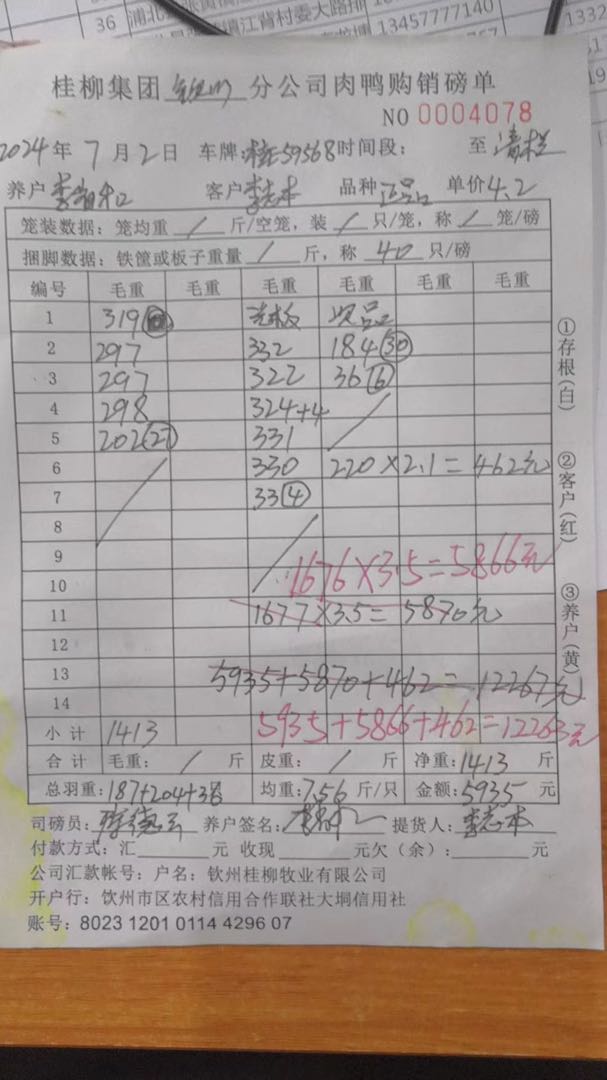 36
江背村委大路排
13457777140
1332
桂柳集团 分公司肉鸭购销磅单
NO 0004078
2024年7月2日 车牌:桂E59568时间段: 至 清栏
养户 客户 李志本 品种 正品 单价4.2
笼装数据:笼均重 / 斤/空笼,装 / 只/笼,称 / 笼/磅
捆脚数据:铁筐或板子重量 / 斤,称 40 只/磅
编号 毛重 毛重 毛重 毛重 毛重 毛重
1 319 光板 次品
2 297 332 184(30)
3 297 322 36(6)
4 298 324+4
5 202(27) 331
6 330 220×2.1=462元
7 33(4)
8
9
10 1676×3.5=5866元
11 1677×3.5=5870元
12
13 5935+5870+462=12267元
14
小计 1413 5935+5866+462=12263元
合计 毛重: / 斤 皮重: / 斤 净重:1413 斤
总羽重:187+204+36 均重:7.56 斤/只 金额:5935 元
司磅员: 养户签名: 提货人:李志本
付款方式:汇 元 收现 元欠(余): 元
公司汇款帐号:户名:钦州桂柳牧业有限公司
开户行:钦州市区农村信用合作联社大垌信用社
账号:8023 1201 0114 4296 07
①存根(白)
②客户(红)
③养户(黄)